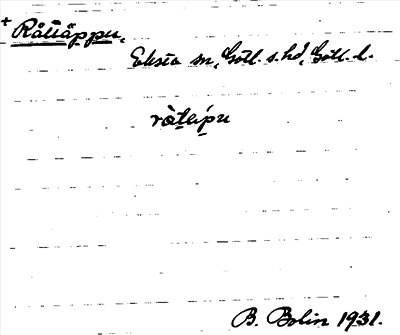 + Råttäppu,
Eksta sn, Gotl. s. hd, Gotl. l.
B. Bolin 1931.